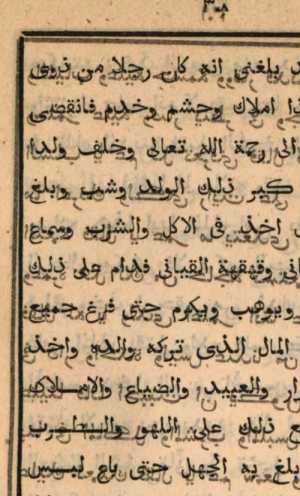 ٣٠٨
بلغني انه كان رجلا من ذوى
املاك وحشم وخدم فانقضى
رحمة الله تعالى وخلف ولدا
كبر ذلك الولد وشب وبلغ
اخذ فى الاكل والشرب وسماع
وقهقهة القيانى فدام على ذلك
ويوهب ويكرم حتى فرغ جميع
المال الذى تركه والده واخذ
والعبيد والضياع والاملاك
ذلك على اللهو والطرب
به الجهل حتى باع لبس